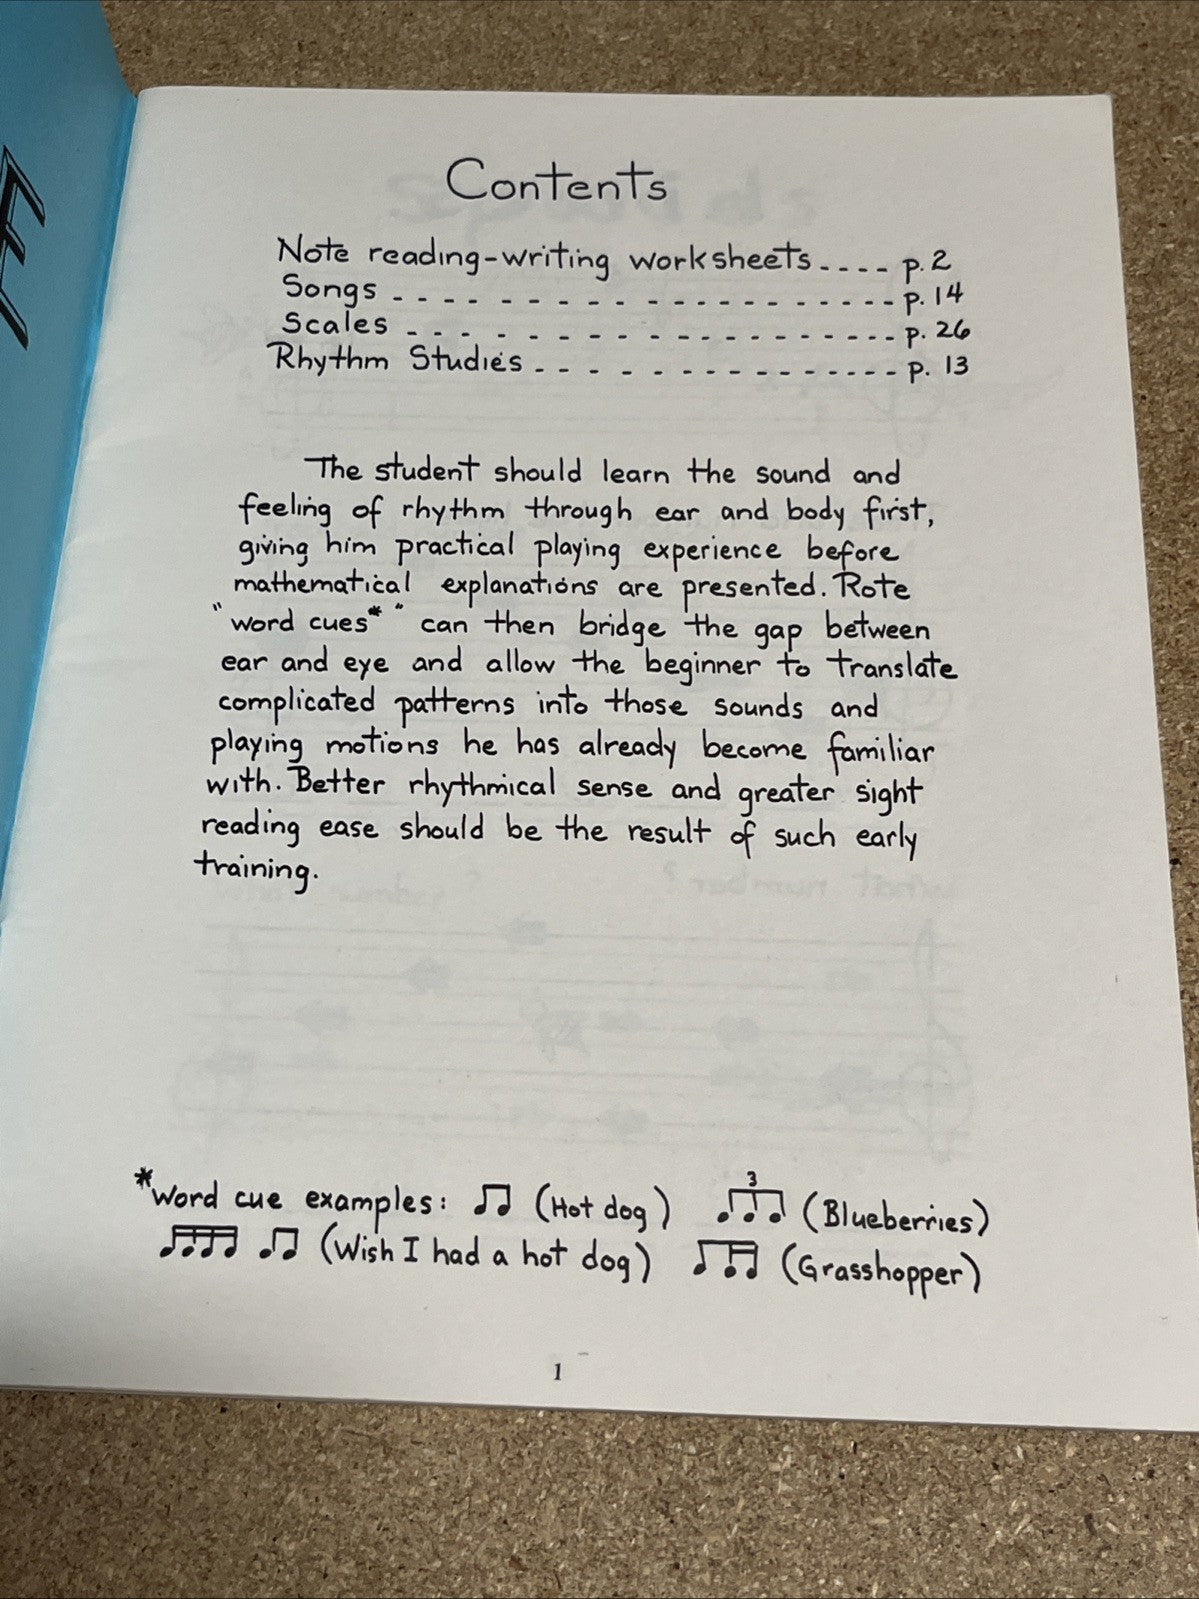 Contents
Note reading-writing worksheets .... p. 2
Songs - - - - - - - - - - - - - - - - - - - - p. 14
Scales - - - - - - - - - - - - - - - - - - - p. 26
Rhythm Studies - - - - - - - - - - - - - - - p. 13
The student should learn the sound and
feeling of rhythm through ear and body first,
giving him practical playing experience before
mathematical explanations are presented. Rote
"word cues*" can then bridge the gap between
ear and eye and allow the beginner to translate
complicated patterns into those sounds and
playing motions he has already become familiar
with. Better rhythmical sense and greater sight
reading ease should be the result of such early
training.
*Word cue examples: ♫ (Hot dog) 3 (Blueberries)
(Wish I had a hot dog) (Grasshopper)
1